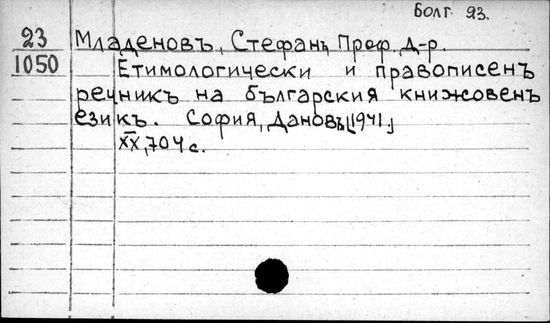 Болг. 93.
23 Младеновъ, Стефанъ, Проф. Д-р.
1050 Етимологически и правописенъ
речникъ на българския книжовенъ
езикъ. София, Дановъ, [1941.]
XX, 704 с.